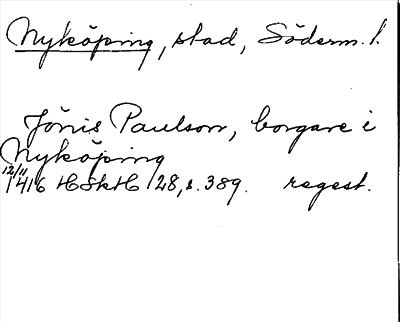 Nyköping, stad, Söderm. l.
Jönis Paulson, borgare i
Nyköping
12/11
1416 HSkH 128, s. 389. regest.